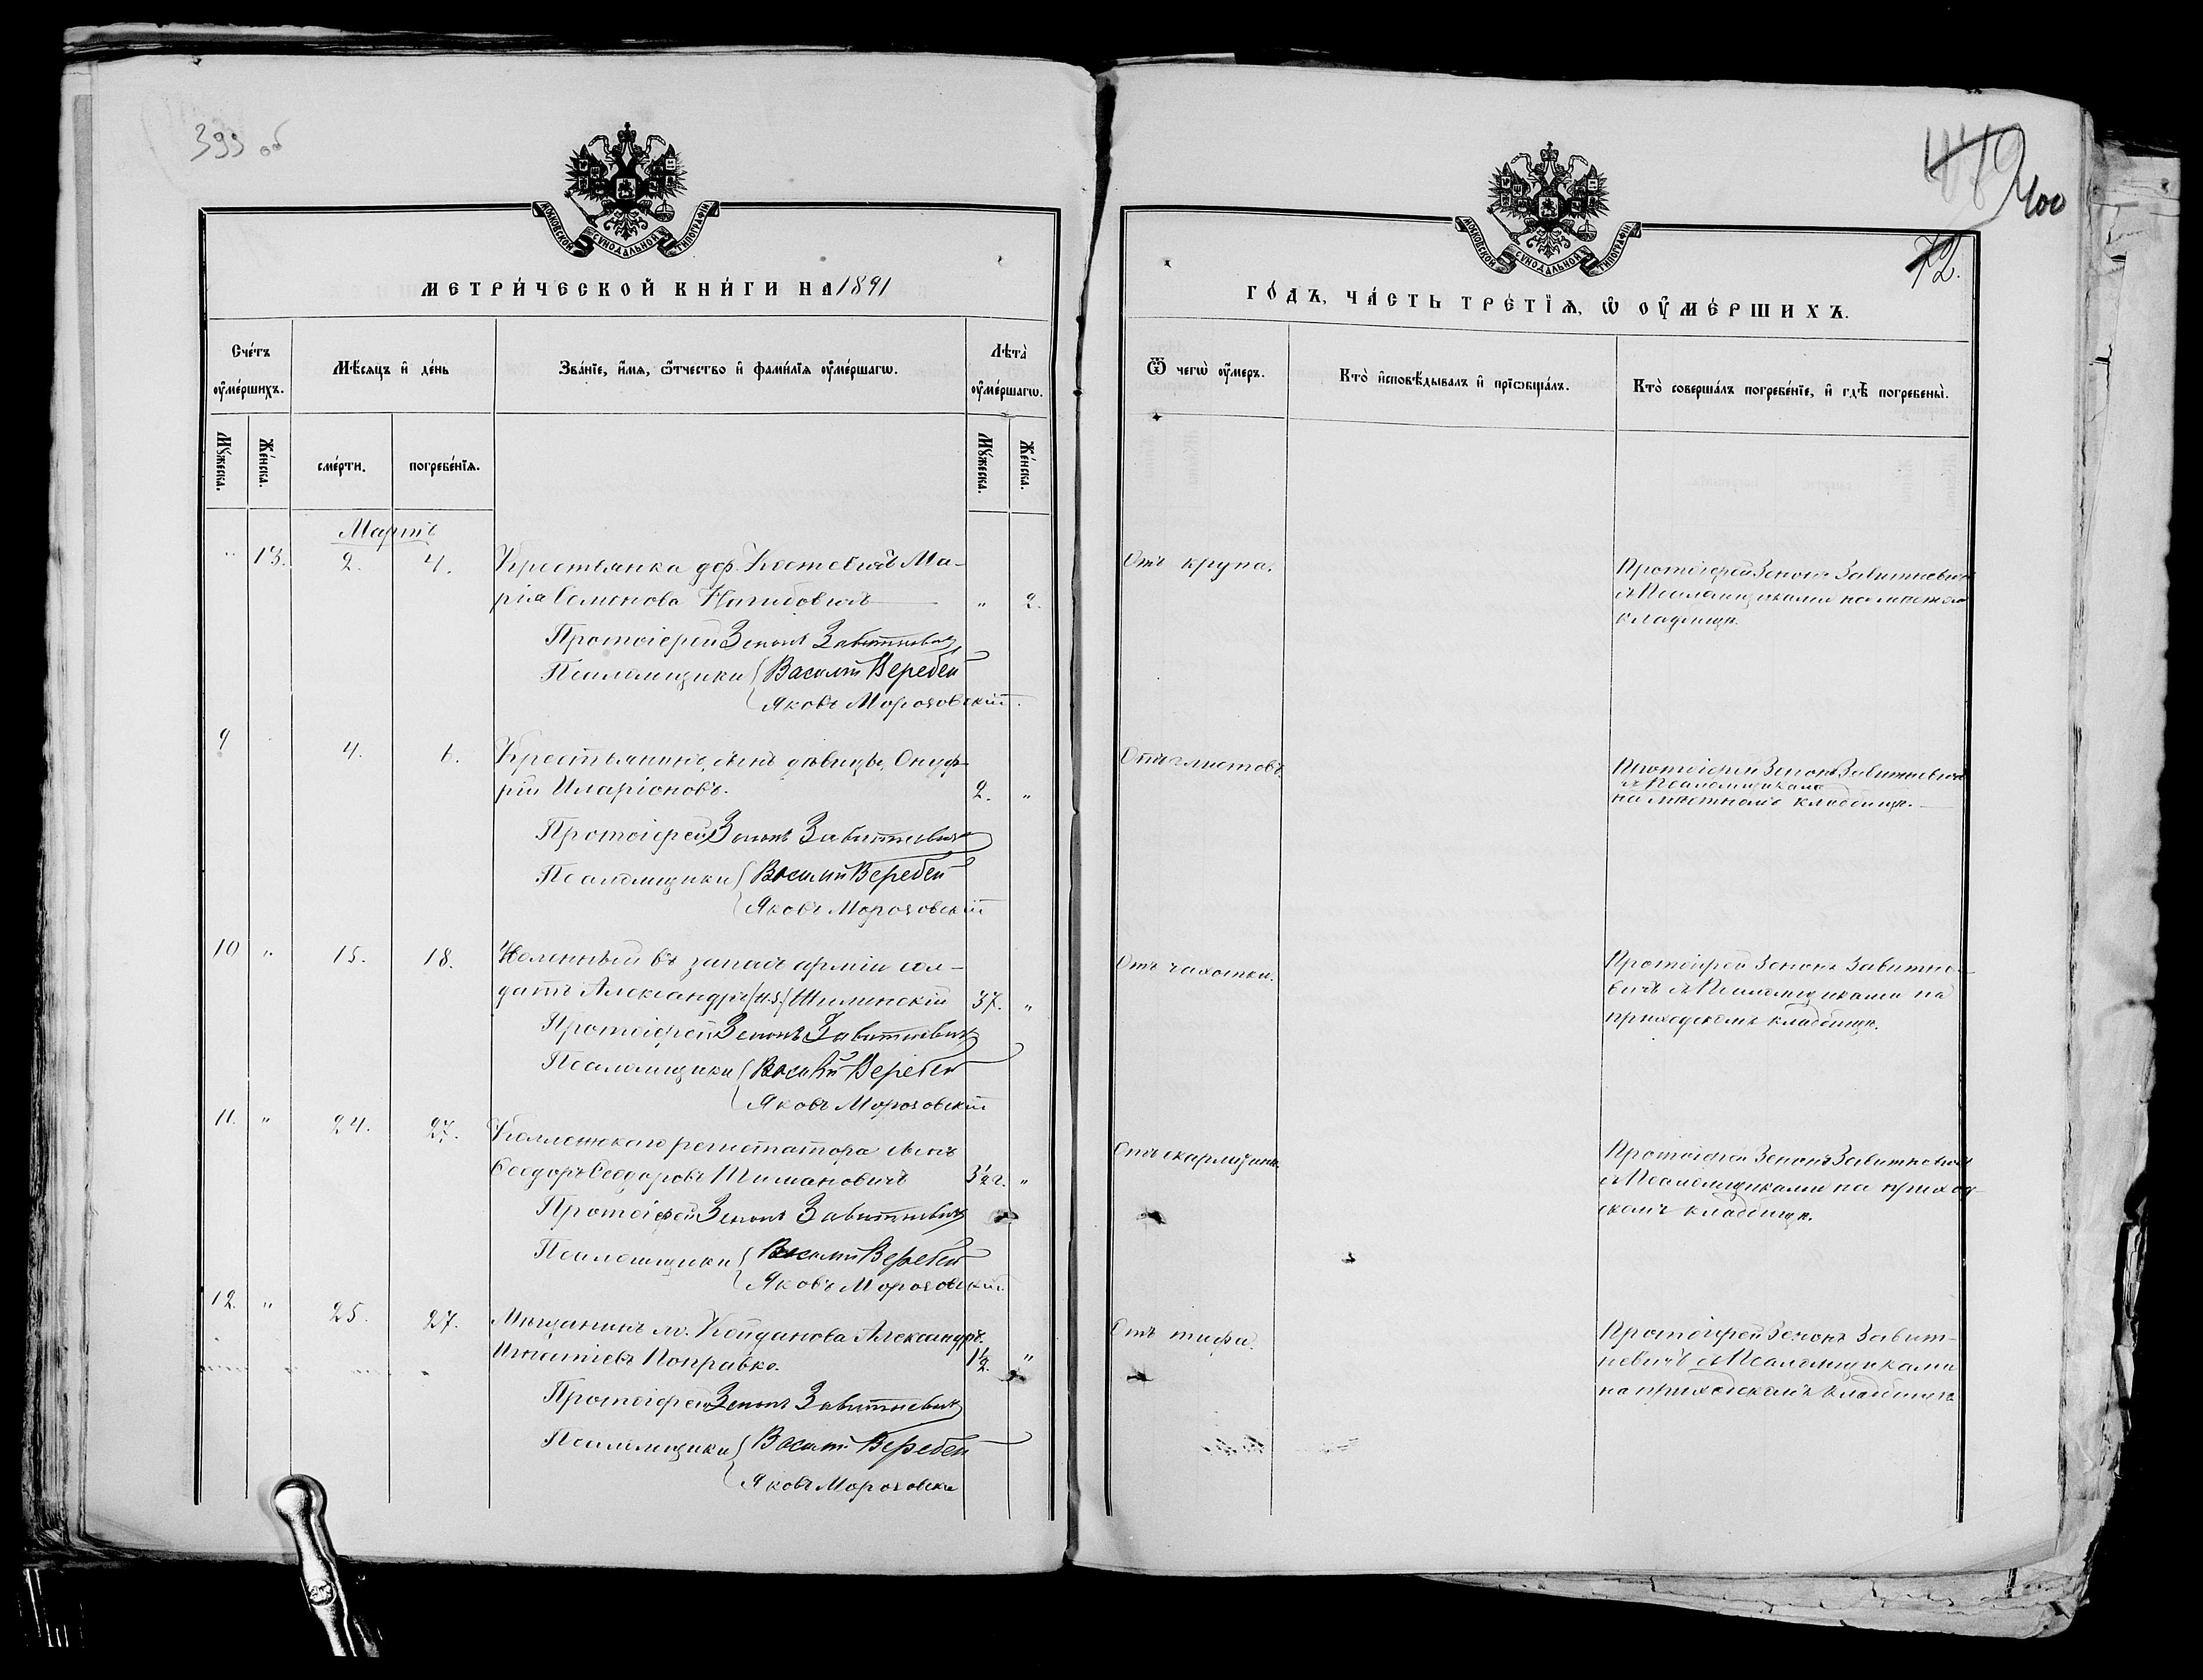 399 об
МОСКОВСКОЙ СѴНОДАЛЬНОЙ ТИПОГРАФІИ
МЕТРИ́ЧЕСКОЙ КНИ́ГИ НА 1891
Сче́тъ ᲂу҆ме́ршихъ.
Мѣ́сяцъ и҆ де́нь
Зва́нїе, и҆́мя, ѻ҆́тчество и҆ фами́лїя ᲂу҆ме́ршагѡ.
Лѣта̀ ᲂу҆ме́ршагѡ.
Мꙋ́жеска.
Же́нска.
сме́рти.
погребе́нїя.
Мꙋ́жеска.
Же́нска.
Мартъ
" 13. 2. 4. Крестьянка дер. Костевичъ Ма-
рія Семенова " 2.
Протоіерей Зенонъ Завитневичъ
Псаломщики Василій Веребей
Яковъ Морозовскій.
9 4. 6. Крестьянинъ, сынъ дѣвицы, Онуф-
рій Иларіоновъ. 2. "
Протоіерей Зенонъ Завитневичъ
Псаломщики Василій Веребей
Яковъ Морозовскій
10 " 15. 18. въ запасъ арміи сол-
датъ Александръ Шиминскій 37. "
Протоіерей Зенонъ Завитневичъ
Псаломщики Василій Веребей
Яковъ Морозовскій
11. " 24. 27. Коллежскаго регистратора сынъ
Ѳеодоръ Ѳеодоровъ Шимановичъ 3½ "
Протоіерей Зенонъ Завитневичъ
Псаломщики Василій Веребей
Яковъ Морозовскій
12. " 25. 27. Мѣщанинъ м. Койданова Александръ
Игнатіевъ Поправко. 1½. "
Протоіерей Зенонъ Завитневичъ
Псаломщики Василій Веребей
Яковъ Морозовскій
400
72.
МОСКОВСКОЙ СѴНОДАЛЬНОЙ ТИПОГРАФІИ
ГО́ДЪ, ЧА́СТЬ ТРЕ́ТЇѦ, Ѡ҆ ОУ҆МЕ́РШИХЪ.
Ѿ чегѡ̀ ᲂу҆́меръ.
Кто̀ и҆сповѣ́дывалъ и҆ прїѡбща́лъ.
Кто̀ соверша́лъ погребе́нїе, и҆ гдѣ̀ погребены̀.
Отъ крупа.
Протоіерей Зенонъ Завитневичъ
съ Псаломщиками на мѣстном
кладбищѣ.
Отъ глистовъ.
Протоіерей Зенонъ Завитневичъ
съ Псаломщиками
на мѣстномъ кладбищѣ.
Отъ чахотки.
Протоіерей Зенонъ Завитне-
вичъ съ Псаломщиками на
приходскомъ кладбищѣ.
Отъ скарлатины.
Протоіерей Зенонъ Завитневичъ
съ Псаломщиками на приход-
скомъ кладбищѣ.
Отъ тифа.
Протоіерей Зенонъ Завит-
невичъ съ Псаломщиками
на приходскомъ кладбищѣ